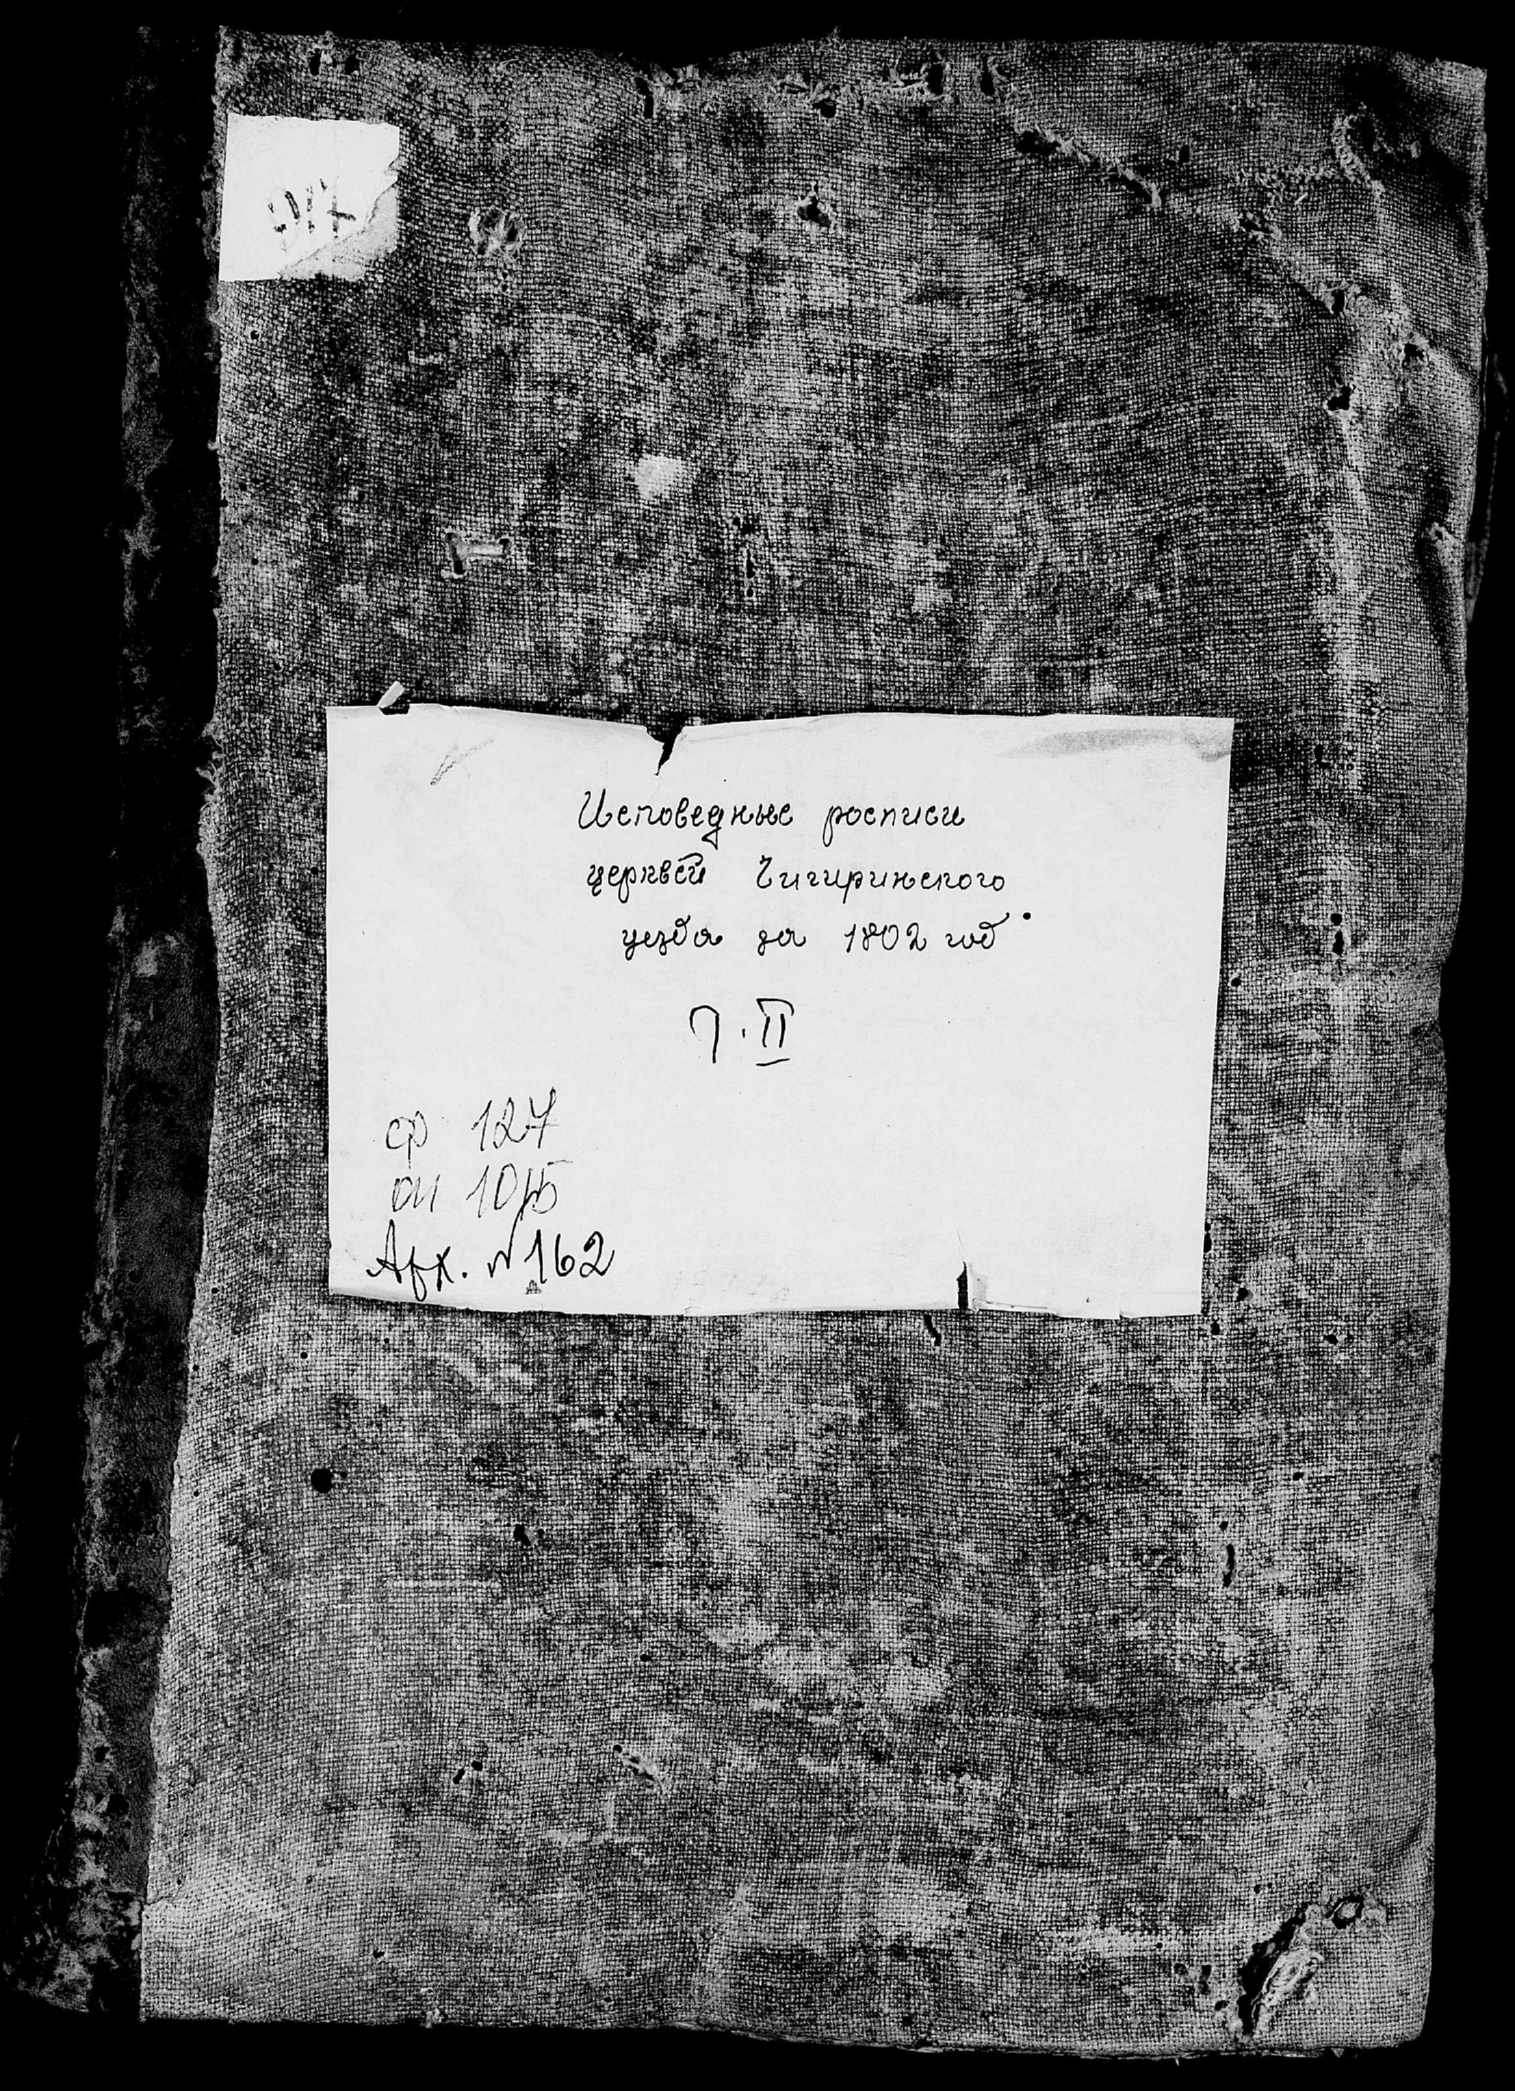 Исповедные росписи
церквей Чигиринского
уезда за 1802 год.
Т. II
ф 127
оп 1015
Арх. № 162